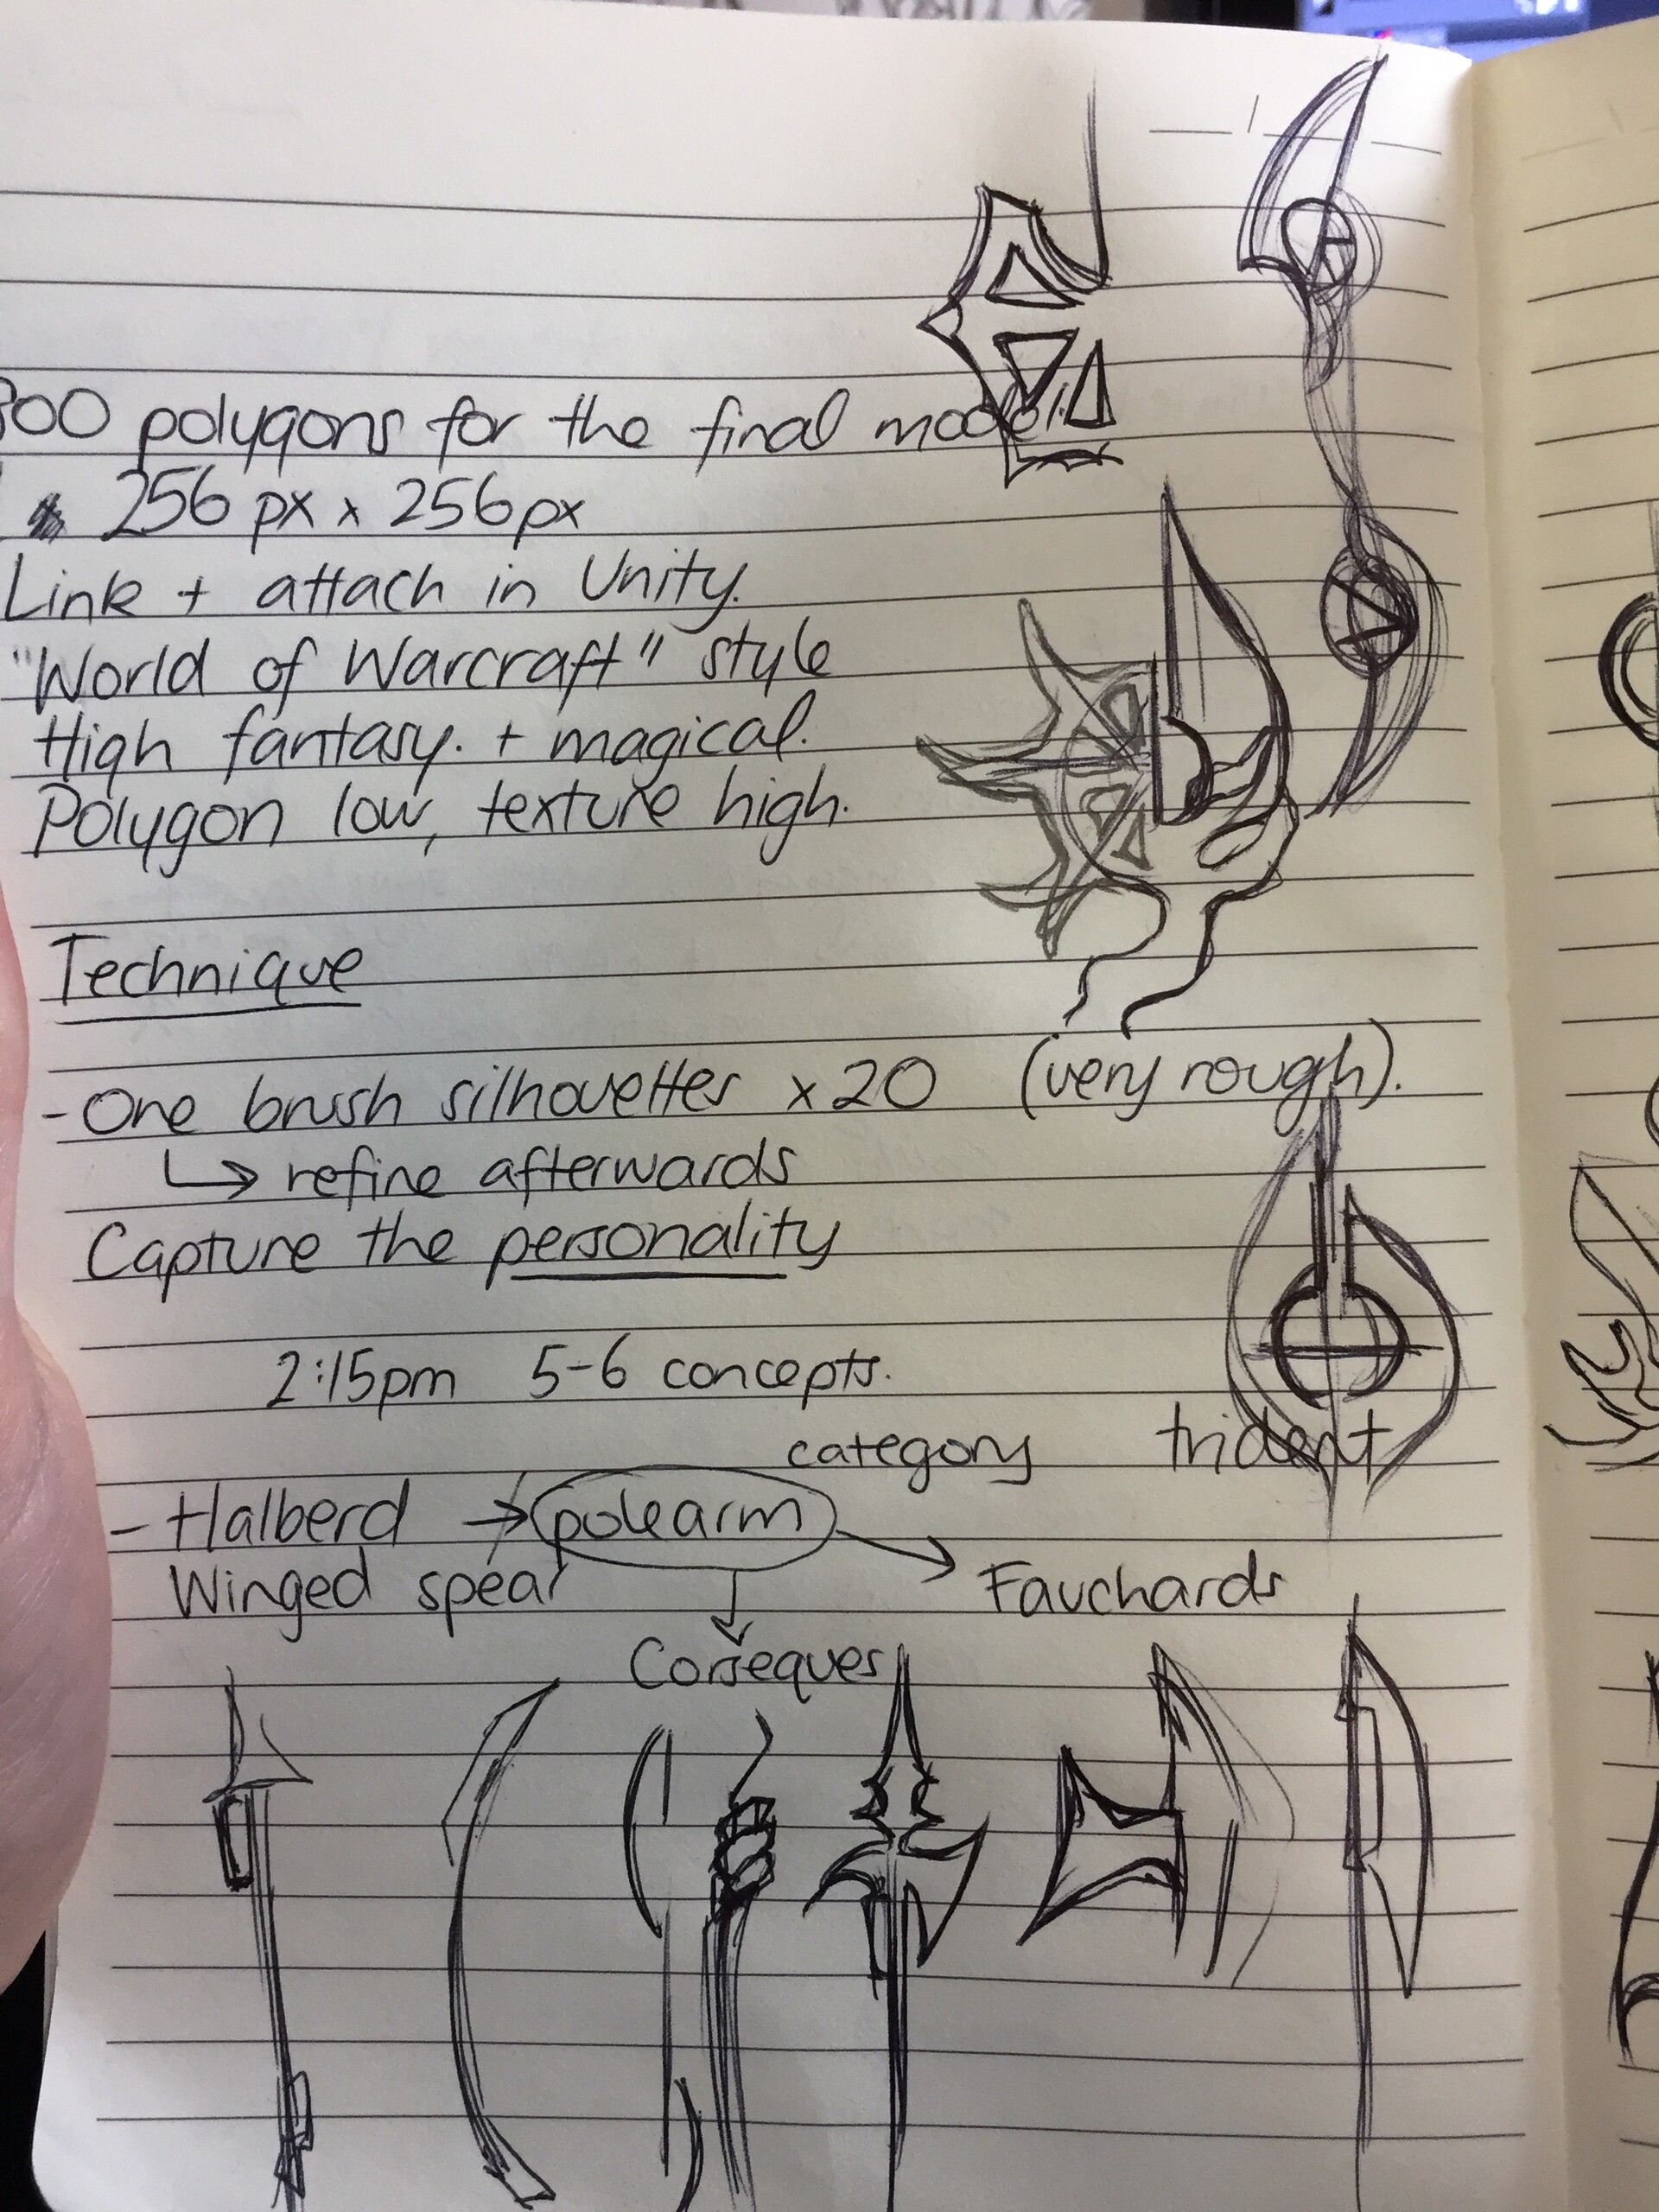 300 polygons for the final model.
256 px x 256px
Link + attach in Unity.
"World of Warcraft" style
High fantasy. + magical.
Polygon low, texture high.
Technique
- One brush silhouettes x20 (very rough).
↳ refine afterwards
Capture the personality
2:15pm 5-6 concepts.
category trident
- Halberd → polearm
Winged spear Fauchards
Corseques